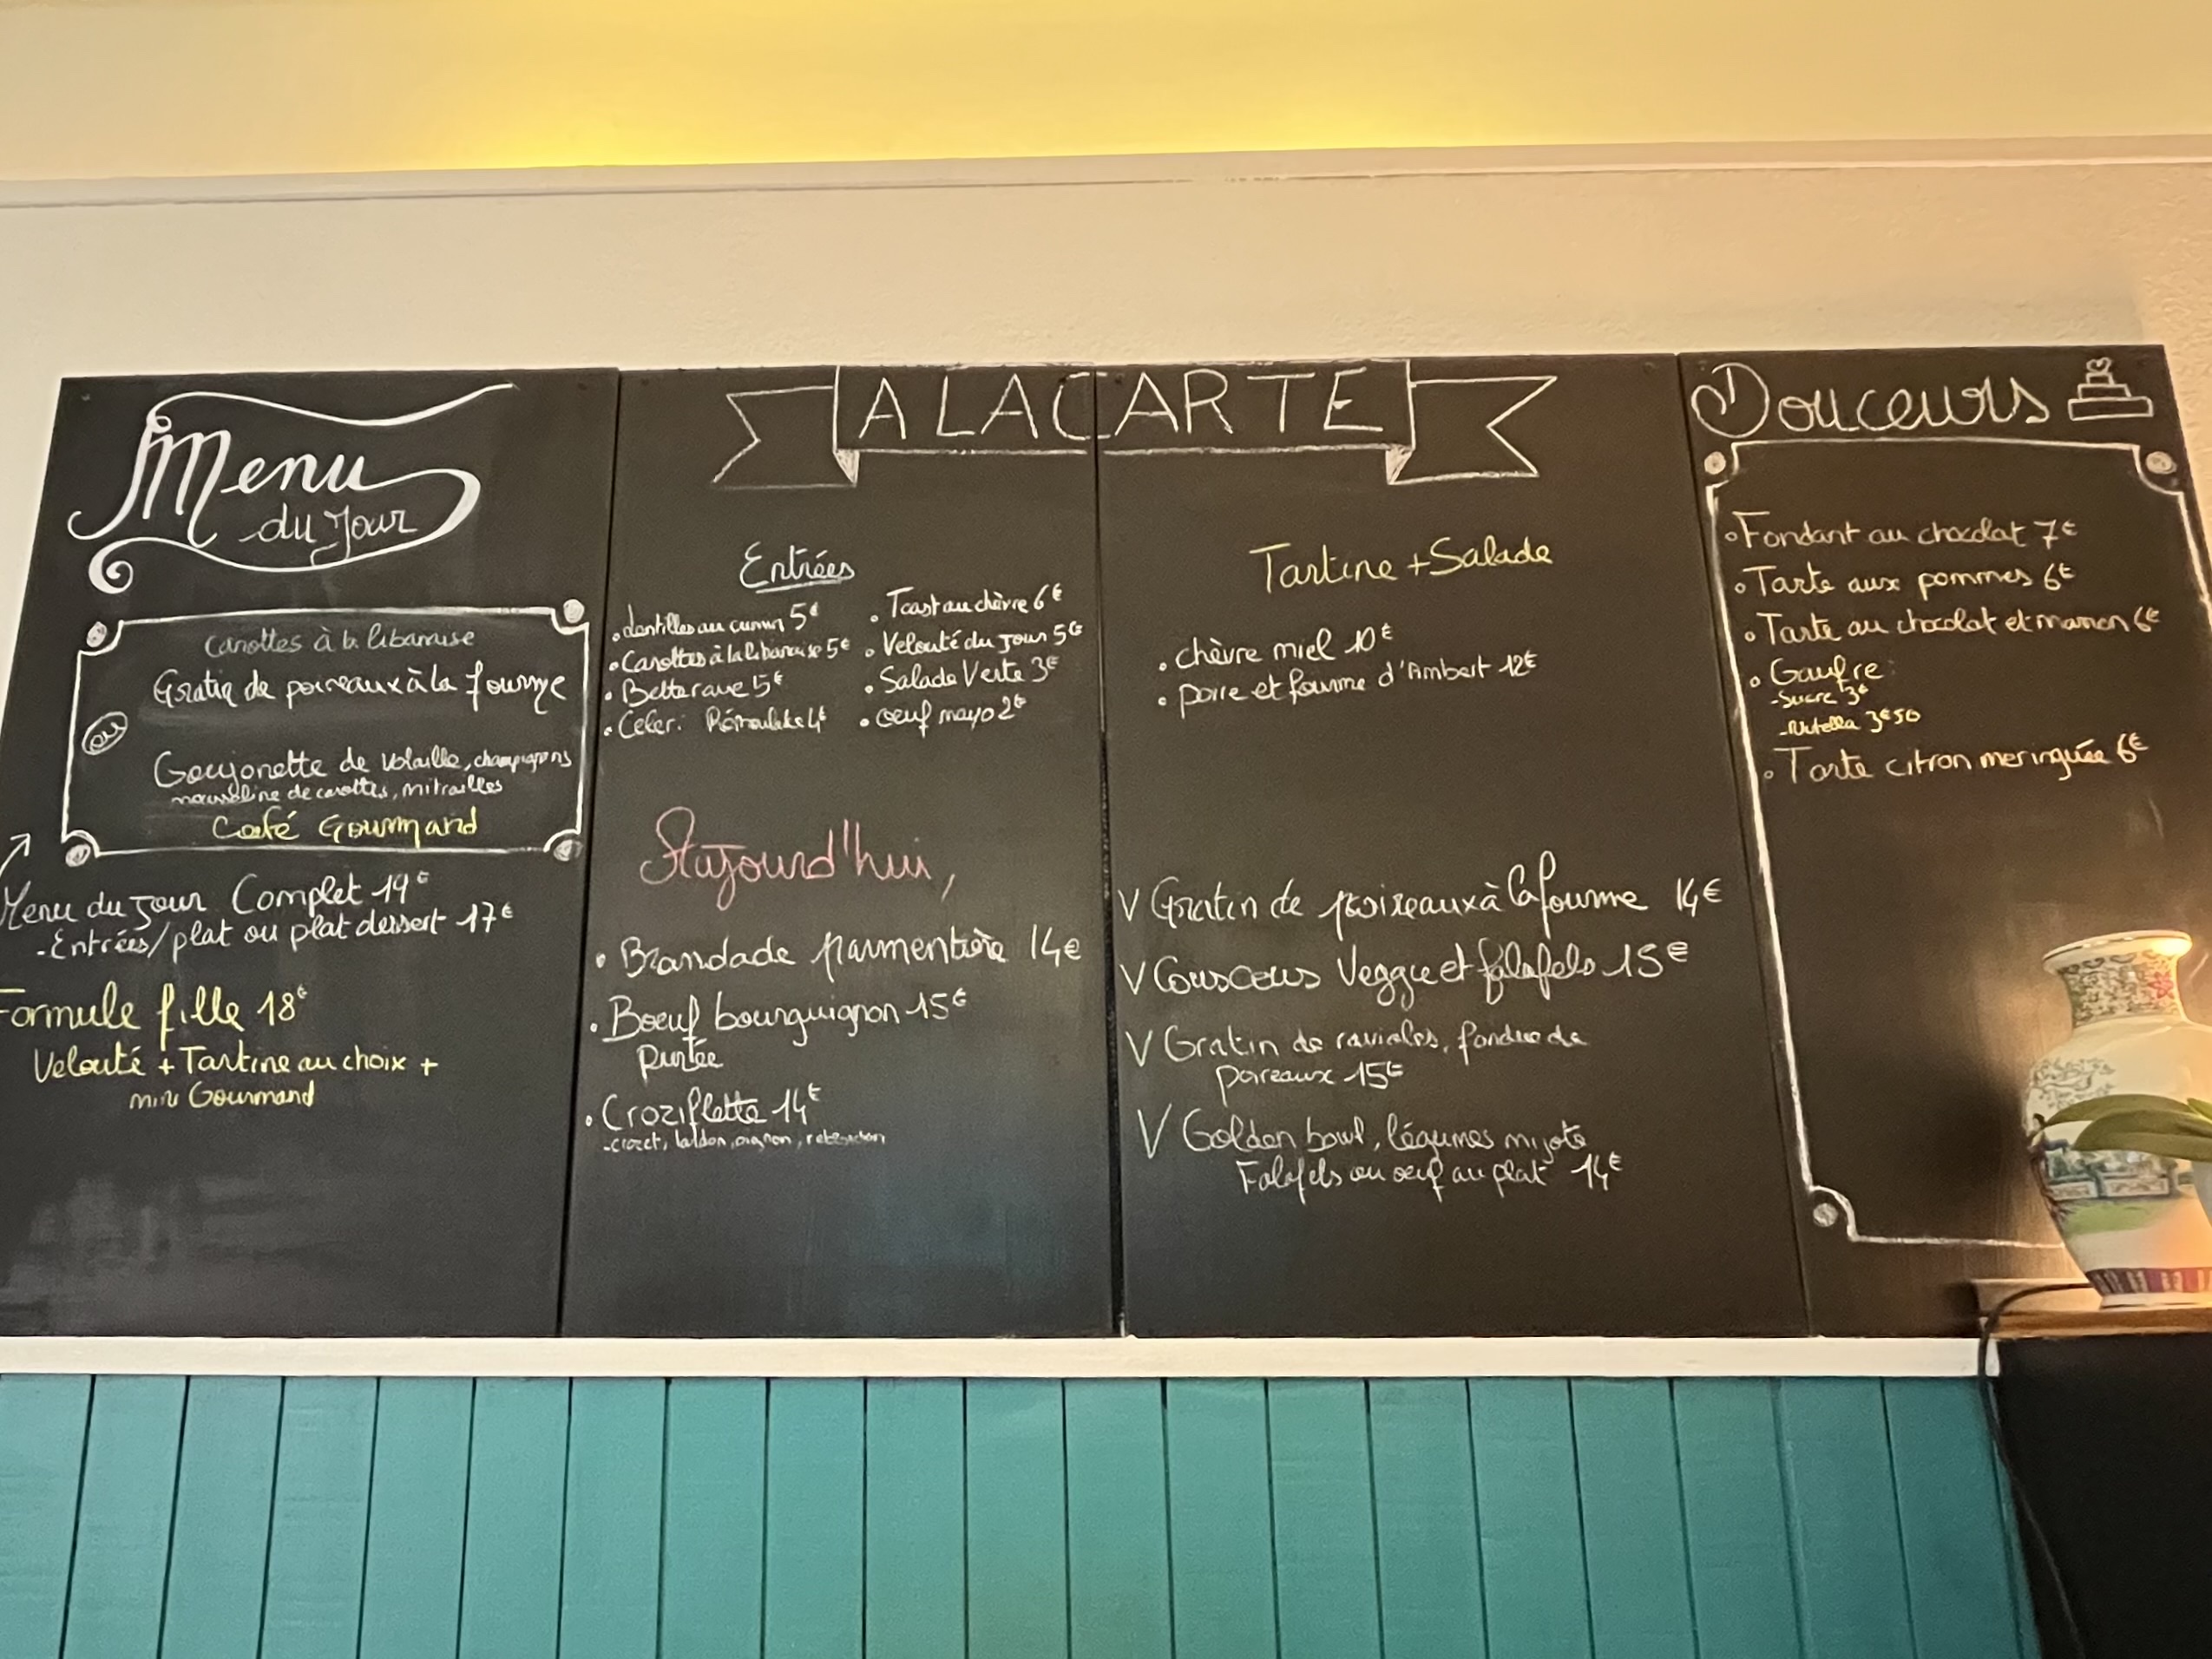 Menu
du Jour
Carottes à la libanaise
Gratin de poireaux à la fourme
ou
Goujonette de volaille, champignons
mousseline de carottes, mitrailles
Café Gourmand
Menu du Jour Complet 19€
-Entrées/plat ou plat dessert 17€
Formule fille 18€
Velouté + Tartine au choix +
mini Gourmand
A LA CARTE
Entrées
• Lentilles au cumin 5€
• Carottes à la libanaise 5€
• Betterave 5€
• Celeri Rémoulade 4€
• Toast au chèvre 6€
• Velouté du Jour 5€
• Salade Verte 3€
• oeuf mayo 2€
Aujourd'hui,
• Brandade parmentière 14€
• Boeuf bourguignon 15€
Purée
• Croziflette 14€
-crozet, lardon, oignon, reblochon
Tartine + Salade
• chèvre miel 10€
• poire et fourme d'Ambert 12€
V Gratin de poireaux à la fourme 14€
V Couscous Veggie et falafels 15€
V Gratin de ravioles, fondue de
poireaux 15€
V Golden bowl, légumes mijoté
Falafels ou oeuf au plat 14€
Douceurs
• Fondant au chocolat 7€
• Tarte aux pommes 6€
• Tarte au chocolat et marron 6€
• Gaufre:
-Sucre 3€
-Nutella 3€50
• Tarte citron meringuée 6€